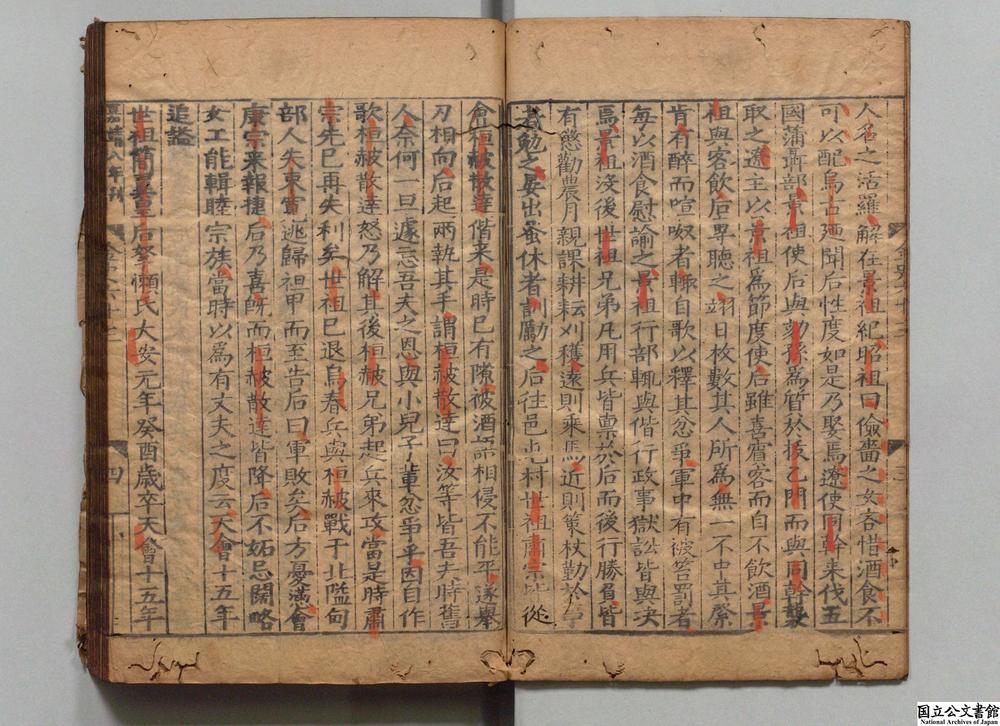 人名之活羅解在景祖紀昭祖曰儉嗇之女吝惜酒食不
可以配烏古廼聞后性度如是乃娶焉遼使同幹來伐五
國蒲聶部景祖使后與劾孫爲質於拔乙門而與同幹襲
取之遼主以景祖爲節度使后雖喜賓客而自不飲酒景
祖與客飲后專聽之翊日枚數其人所爲無一不中其縏
肯有醉而喧呶者輙自歌以釋其忿爭軍中有被笞罰者
每以酒食慰諭之景祖行部輙與偕行政事獄訟皆與决
焉景祖没後世祖兄弟凡用兵皆禀於后而後行勝負皆
有懲勸農月親課耕耘刈穫遠則乗馬近則策杖勤於事
者勉之晏出蚤休者訓勵之后往邑屯村世祖肅宗皆從
會桓赧散達偕來是時已有隙被酒語相侵不能平遂舉
刃相向后起兩執其手謂桓赧散達曰汝等皆吾夫時舊
人奈何一旦遽忘吾夫之恩與小兒子輩忿爭乎因自作
歌桓赧散達怒乃解其後桓赧兄弟起兵來攻當是時肅
宗先已再失利矣世祖已退烏春兵與桓赧戰于北隘甸
部人失束寛逃歸袒甲而至告后曰軍敗矣后方憂懣會
康宗来報捷后乃喜旣而桓赧散達皆降后不妬忌闊略
女工能輯睦宗族當時以爲有丈夫之度云天會十五年
追謚
世祖簡翼皇后拏懶氏大安元年癸酉歳卒天會十五年
嘉靖八年刊
金史六十三
四
三
国立公文書館
National Archives of Japan